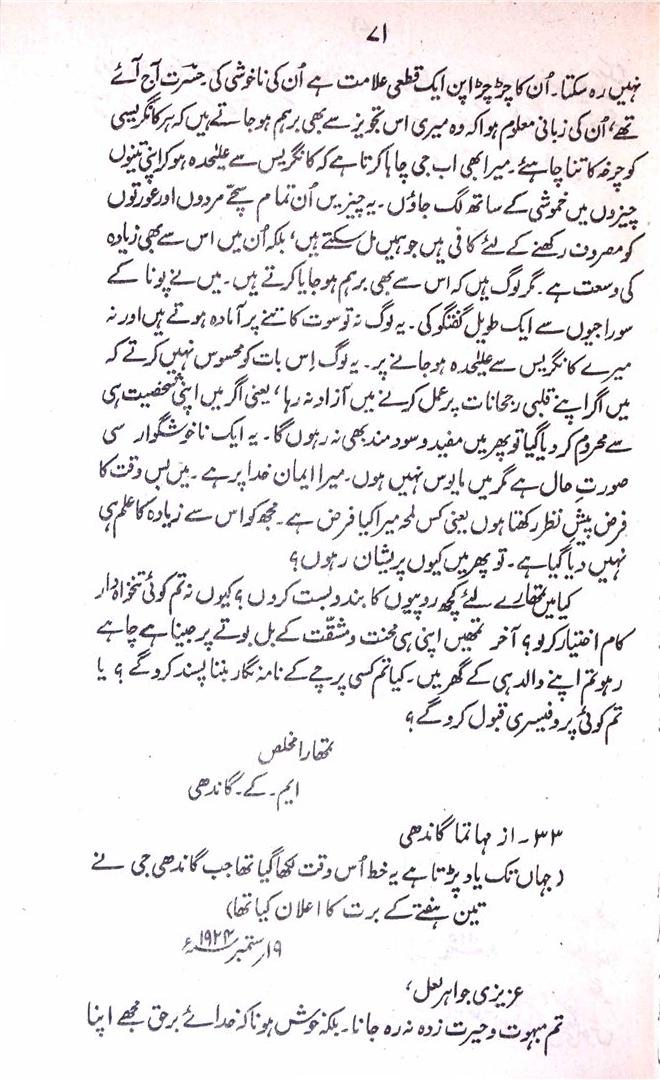 ۷۱
نہیں رہ سکتا۔ اُن کا چڑچڑاپن ایک قطعی علامت ہے اُن کی ناخوشی کی۔ حسرت آج آئے
تھے، اُن کی زبانی معلوم ہوا کہ وہ میری اس تجویز سے بھی برہم ہو جاتے ہیں کہ ہر کانگریسی
کو چرخہ کاتنا چاہیئے۔ میرا بھی اب جی چاہا کرتا ہے کہ کانگریس سے علیٰحدہ ہو کر اپنی تینوں
چیزوں میں خموشی کے ساتھ لگ جاؤں۔ یہ چیزیں اُن تمام سچّے مردوں اور عورتوں
کو مصروف رکھنے کے لئے کافی ہیں جو ہمیں مل سکتے ہیں، بلکہ اُن میں اس سے بھی زیادہ
کی وسعت ہے۔ مگر لوگ ہیں کہ اس سے بھی برہم ہو جایا کرتے ہیں۔ میں نے پونا کے
سوراجیوں سے ایک طویل گفتگو کی۔ یہ لوگ نہ تو سوت کاتنے پر آمادہ ہوتے ہیں اور نہ
میرے کانگریس سے علیٰحدہ ہو جانے پر۔ یہ لوگ اِس بات کو محسوس نہیں کرتے کہ
میں اگر اپنے قلبی رجحانات پر عمل کرنے میں آزاد نہ رہا، یعنی اگر میں اپنی شخصیت ہی
سے محروم کر دیا گیا تو پھر میں مفید و سودمند بھی نہ رہوں گا۔ یہ ایک ناخوشگوار سی
صورتِ حال ہے مگر میں مایوس نہیں ہوں۔ میرا ایمان خدا پر ہے۔ میں بس وقت کا
فرض پیشِ نظر رکھتا ہوں یعنی کس لمحہ میرا کیا فرض ہے۔ مجھ کو اس سے زیادہ کا علم ہی
نہیں دیا گیا ہے۔ تو پھر میں کیوں پریشان رہوں؟
کیا میں تمھارے لئے کچھ روپیوں کا بندوبست کروں؟ کیوں نہ تم کوئی تنخواہ دار
کام اختیار کر لو؟ آخر تمھیں اپنی ہی محنت و مشقّت کے بل بوتے پر جینا ہے چاہے
رہو تم اپنے والد ہی کے گھر میں۔ کیا تم کسی پرچے کے نامہ نگار بننا پسند کرو گے؟ یا
تم کوئی پروفیسری قبول کرو گے؟
تمھارا مخلص
ایم۔ کے۔ گاندھی
۳۳۔ از مہاتما گاندھی
(جہاں تک یاد پڑتا ہے یہ خط اُس وقت لکھا گیا تھا جب گاندھی جی نے
تین ہفتے کے برت کا اعلان کیا تھا)
۱۹ر ستمبر ۱۹۲۴ء
عزیزی جواہر لعل،
تم مبہوت و حیرت زدہ نہ رہ جانا۔ بلکہ خوش ہونا کہ خدائے برحق مجھے اپنا